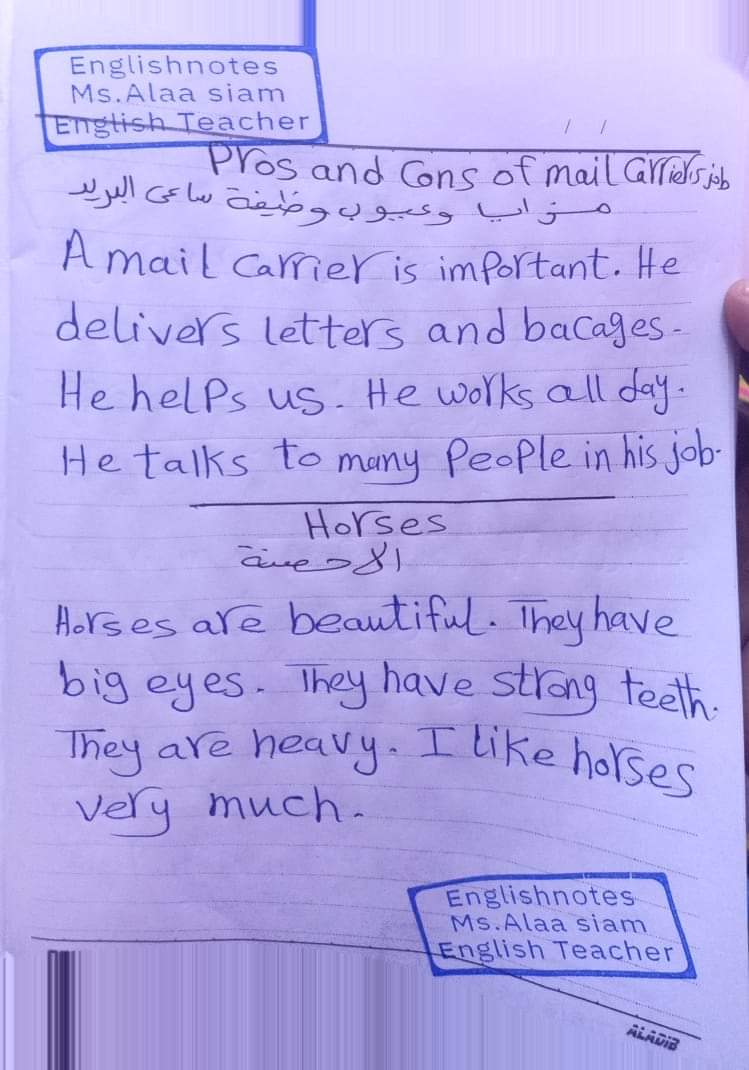 Englishnotes
Ms.Alaa siam
English Teacher
/ /
Pros and Cons of mail Carrier's job
مزايا وعيوب وظيفة ساعى البريد
A mail Carrier is important. He
delivers letters and bacages.
He helps us. He works all day.
He talks to many people in his job.
Horses
الاحصنة
Horses are beautiful. They have
big eyes. They have strong teeth.
They are heavy. I like horses
very much.
Englishnotes
Ms.Alaa siam
English Teacher
ALADIB